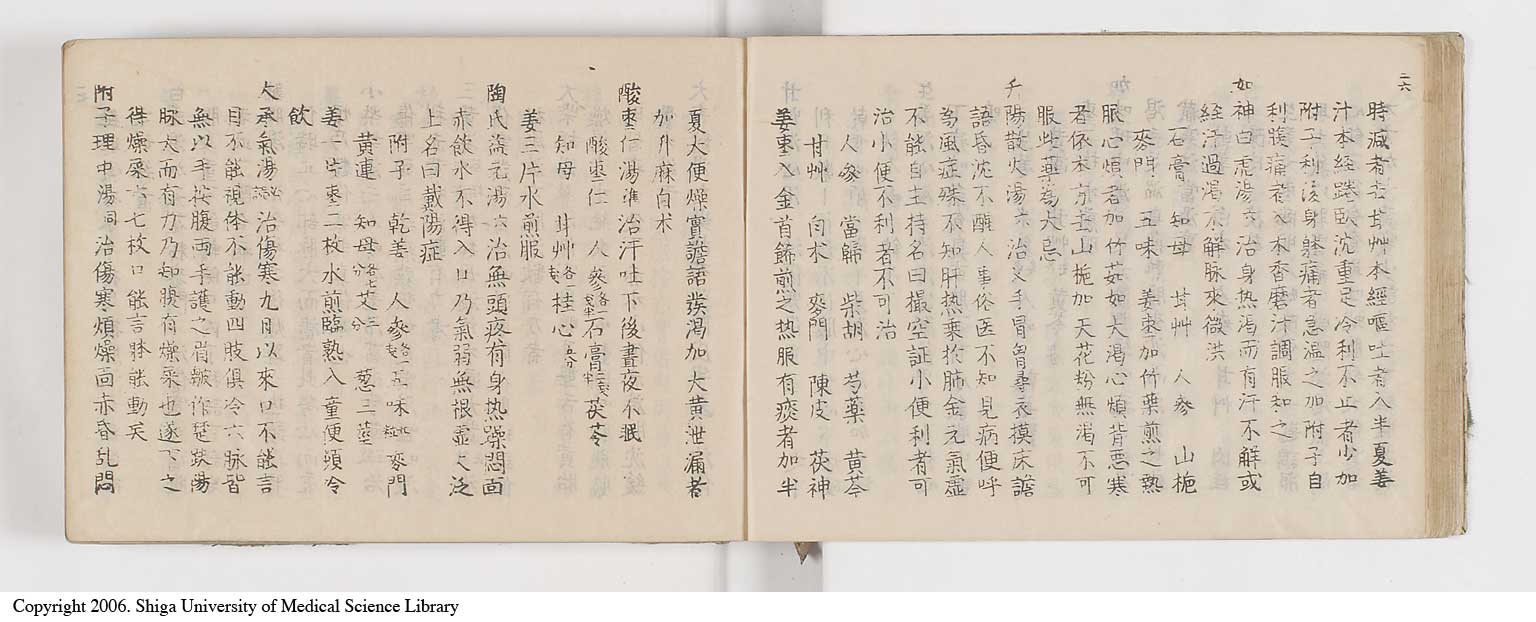 二六
時減者去甘艸本経嘔吐者入半夏姜
汁本経踡卧沈重足冷利不止者少加
附子利後身躰痛者急温之加附子自
利腹痛者入木香磨汁調服和之
如神白虎湯 治身热渇而有汗不解或
経汗過渇不解脉來微洪
石膏 知母 甘艸 人參 山梔
麥門 五味 姜枣加竹葉煎之熱
服心煩者加竹茹如大渇心煩背悪寒
者依本方去山梔加天花粉無渇不可
服此藥為大忌
升陽散火湯 治叉手冐胷尋衣摸床譫
語昏沈不醒人事俗医不知見病便呼
為風症殊不知肝热乗於肺金元氣虚
不能自主持名曰撮空証小便利者可
治小便不利者不可治
人參 當歸 柴胡 芍藥 黄芩
甘艸 白朮 麥門 陳皮 茯神
姜枣入金首餙煎之热服有痰者加半
夏大便燥實譫語發渇加大黄泄漏者
加升麻白朮
酸枣仁湯 準治汗吐下後晝夜不眠
酸枣仁 人參 石膏 茯苓
知母 甘艸 桂心
姜三片水煎服
陶氏益元湯 治無頭疼有身热躁悶面
赤飲水不得入口乃氣弱無根虚火泛
上名曰戴陽症
附子 乾姜 人參 五味 麥門
黄連 知母 艾 葱三莖
姜一片枣二枚水煎臨熟入童便頓冷
飲
大承氣湯 治傷寒九日以來口不能言
目不能視体不能動四肢俱冷六脉皆
無以手按腹両手護之眉皺作楚趺陽
脉大而有力乃知腹有燥屎也遂下之
得燥屎六七枚口能言躰能動矣
附子理中湯 治傷寒煩燥面赤昏乱悶